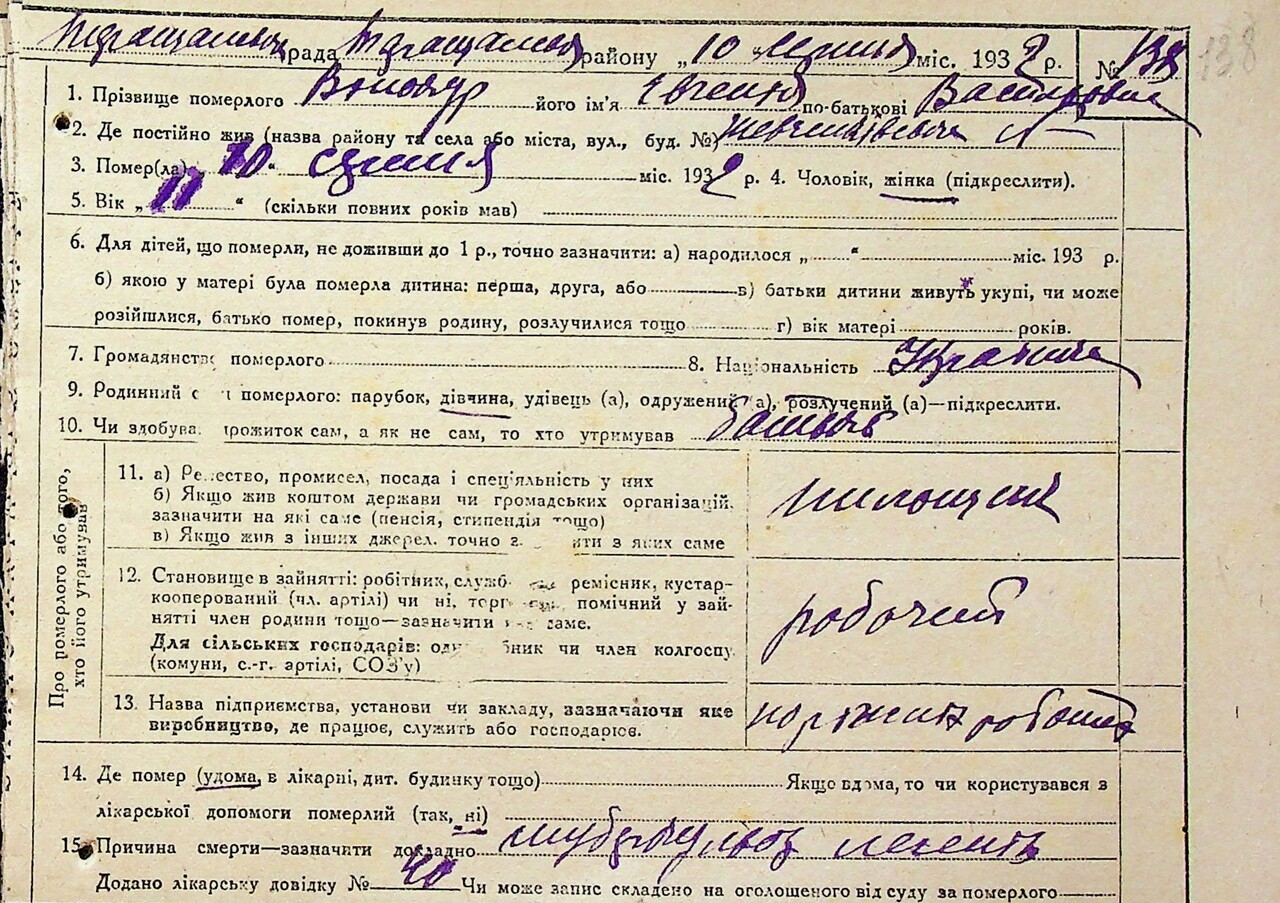 рада району „10 міс. 193 р. № 138 138
1. Прізвище померлого його ім'я Евгенія по-батькові Василовна
2. Де постійно жив (назва району та села або міста, вул., буд. №)
3. Помер(ла) „10“ січня міс. 193 р. 4. Чоловік, жінка (підкреслити).
5. Вік „17“ (скільки повних років мав)
6. Для дітей, що померли, не доживши до 1 р., точно зазначити: а) народилося „ “ міс. 193 р.
б) якою у матері була померла дитина: перша, друга, або в) батьки дитини живуть укупі, чи може
розійшлися, батько помер, покинув родину, розлучилися тощо г) вік матері років.
7. Громадянство померлого 8. Національність Украінка
9. Родинний с померлого: парубок, дівчина, удівець (а), одружений (а), розлучений (а)—підкреслити.
10. Чи здобува прожиток сам, а як не сам, то хто утримував батько
Про померлого або того,
хто його утримував
11. а) Ре ество, промисел, посада і спец'яльність у них
б) Якщо жив коштом держави чи громадських організацій,
зазначити на які саме (пенсія, стипендія тощо)
в) Якщо жив з інших джерел, точно з яких саме
12. Становище в зайнятті: робітник, служб ремісник, кустар-
кооперований (чл. артілі) чи ні, торг помічний у зай-
нятті член родини тощо—зазначити саме.
Для сільських господарів: од чи член колгоспу
(комуни, с.-г. артілі, СОЗ'у)
робочий
13. Назва підприємства, установи чи закладу, зазначаючи яке
виробництво, де працює, служить або господарює.
14. Де помер (удома, в лікарні, дит. будинку тощо) Якщо вдома, то чи користувався з
лікарської допомоги померлий (так, ні)
15. Причина смерти—зазначити докладно туберкульоз легень
Додано лікарську довідку № 40 Чи може запис складено на оголошеного від суду за померлого